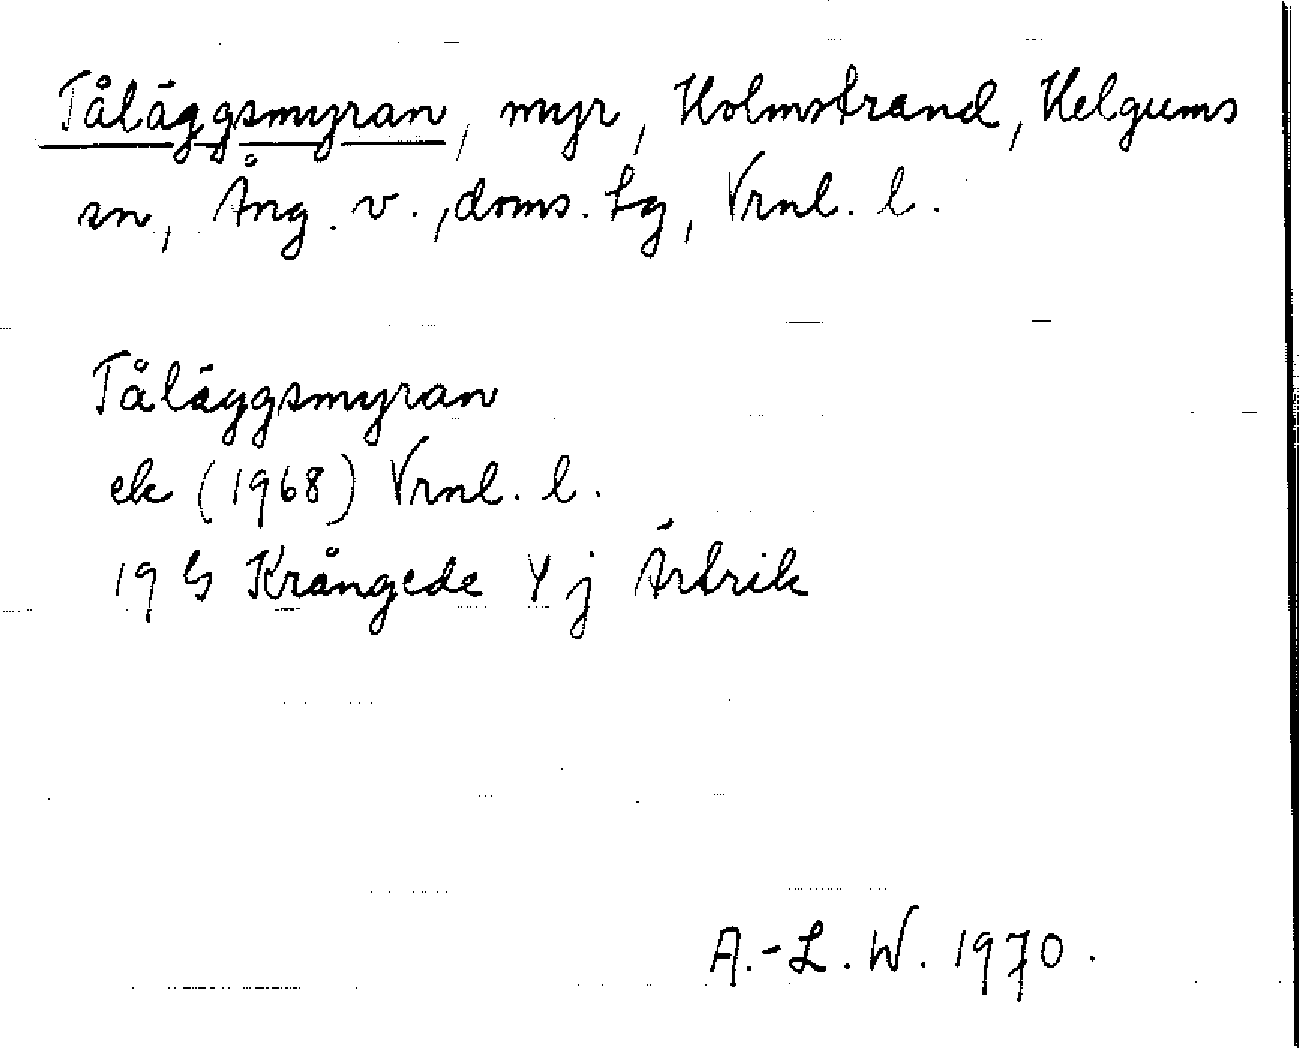 Tåläggsmyran, myr, Holmstrand, Helgums
sn, Ång. v., doms. lg, Vrnl. l.
Tåläggsmyran
ek (1968) Vrnl. l.
19 G Krångede Y j Ärtrik
A.-L. W. 1970.